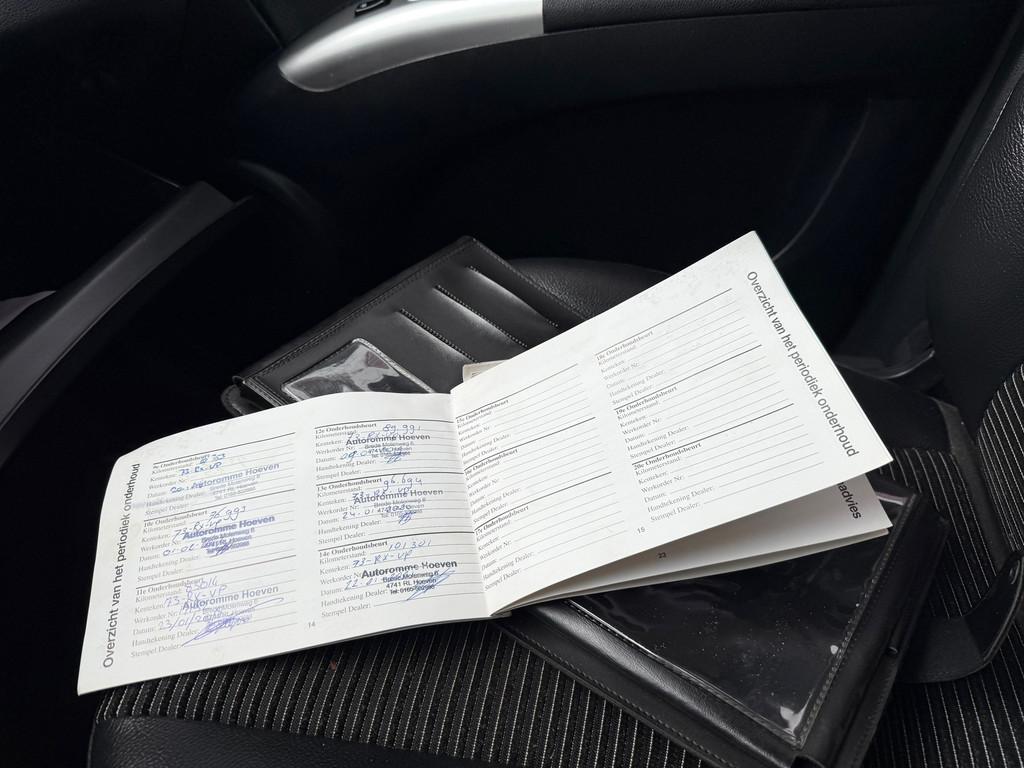 Overzicht van het periodiek onderhoud
9e Onderhoudsbeurt
Kilometerstand:
Kenteken: 73-RX-VP
Werkorder Nr:
Autoromme Hoeven
Datum:
Handtekening Dealer:
Stempel Dealer:
10e Onderhoudsbeurt
Kilometerstand: 76.993
Kenteken: 73-RX-VP
Werkorder Nr:
Autoromme Hoeven
Bovenste Molenweg 6
Datum: 01-02
Handtekening Dealer:
Stempel Dealer:
11e Onderhoudsbeurt
Kilometerstand: 83016
Kenteken: 73-RX-VP
Werkorder Nr:
Autoromme Hoeven
Datum: 23/01/
Handtekening Dealer:
Stempel Dealer:
12e Onderhoudsbeurt
Kilometerstand: 89.991
Kenteken: 73-RX-VP
Werkorder Nr:
Autoromme Hoeven
4741 RL Hoeven
Datum:
Handtekening Dealer:
Stempel Dealer:
13e Onderhoudsbeurt
Kilometerstand: 96.694
Kenteken: 73-RX-VP
Werkorder Nr:
Autoromme Hoeven
Datum: 24.01
Handtekening Dealer:
Stempel Dealer:
14e Onderhoudsbeurt
Kilometerstand: 101301
Kenteken: 73-RX-VP
Werkorder Nr:
Autoromme Hoeven
4741 RL Hoeven
Datum:
Handtekening Dealer:
Stempel Dealer:
14
15e Onderhoudsbeurt
Kilometerstand:
Kenteken:
Werkorder Nr:
Datum:
Handtekening Dealer:
Stempel Dealer:
16e Onderhoudsbeurt
Kilometerstand:
Kenteken:
Werkorder Nr:
Datum:
Handtekening Dealer:
Stempel Dealer:
17e Onderhoudsbeurt
Kilometerstand:
Kenteken:
Werkorder Nr:
Datum:
Handtekening Dealer:
Stempel Dealer:
18e Onderhoudsbeurt
Kilometerstand:
Kenteken:
Werkorder Nr:
Datum:
Handtekening Dealer:
Stempel Dealer:
19e Onderhoudsbeurt
Kilometerstand:
Kenteken:
Werkorder Nr:
Datum:
Handtekening Dealer:
Stempel Dealer:
20e Onderhoudsbeurt
Kilometerstand:
Kenteken:
Werkorder Nr:
Datum:
Handtekening Dealer:
Stempel Dealer:
15
Overzicht van het periodiek onderhoud
advies
22